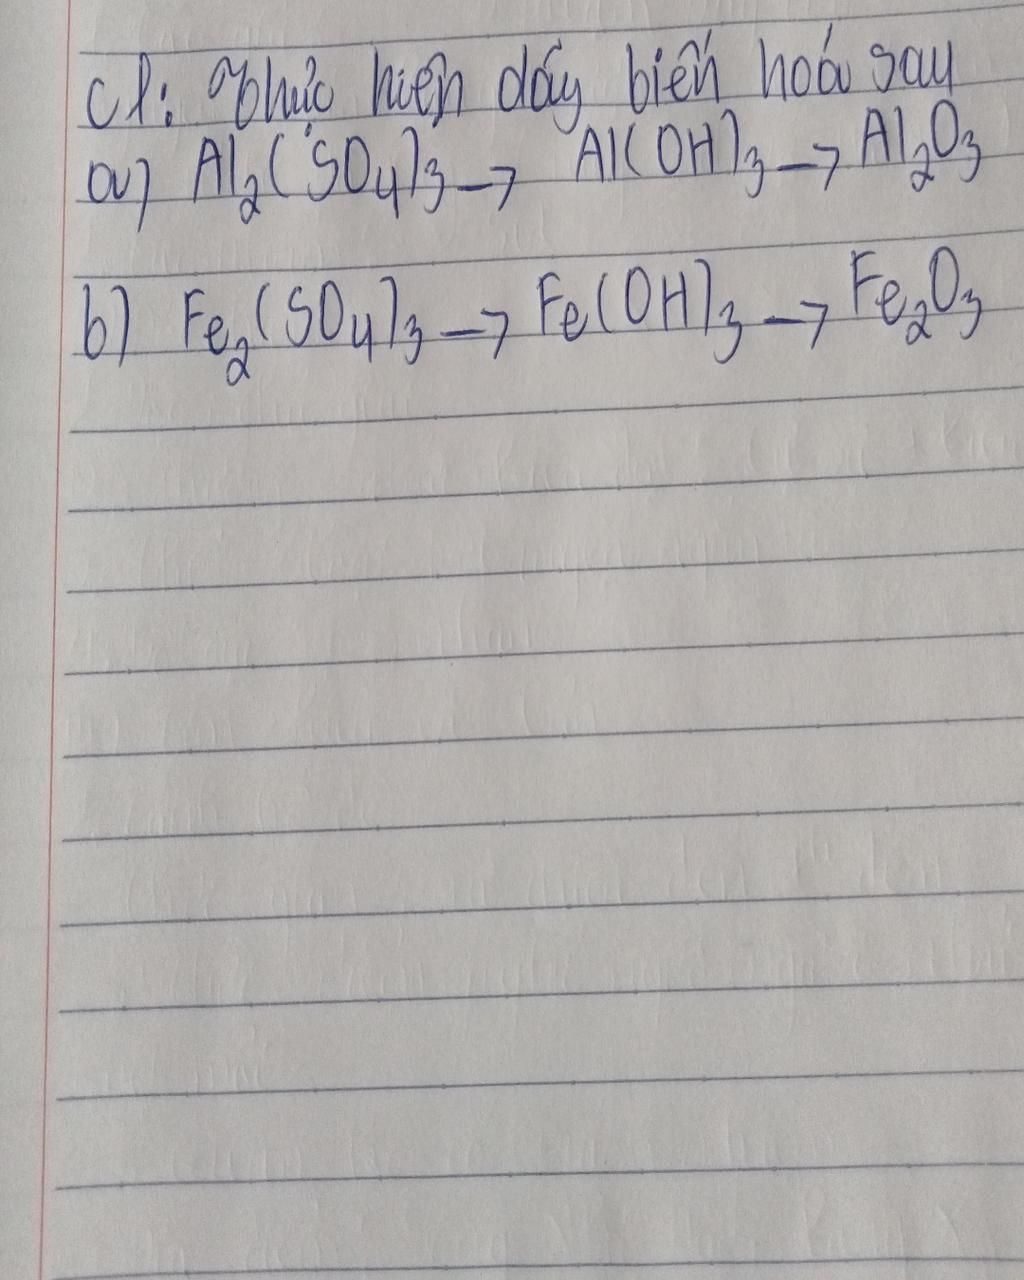 C1: Thực hiện dãy biến hoá sau
a) Al₂(SO₄)₃ → Al(OH)₃ → Al₂O₃
b) Fe₂(SO₄)₃ → Fe(OH)₃ → Fe₂O₃